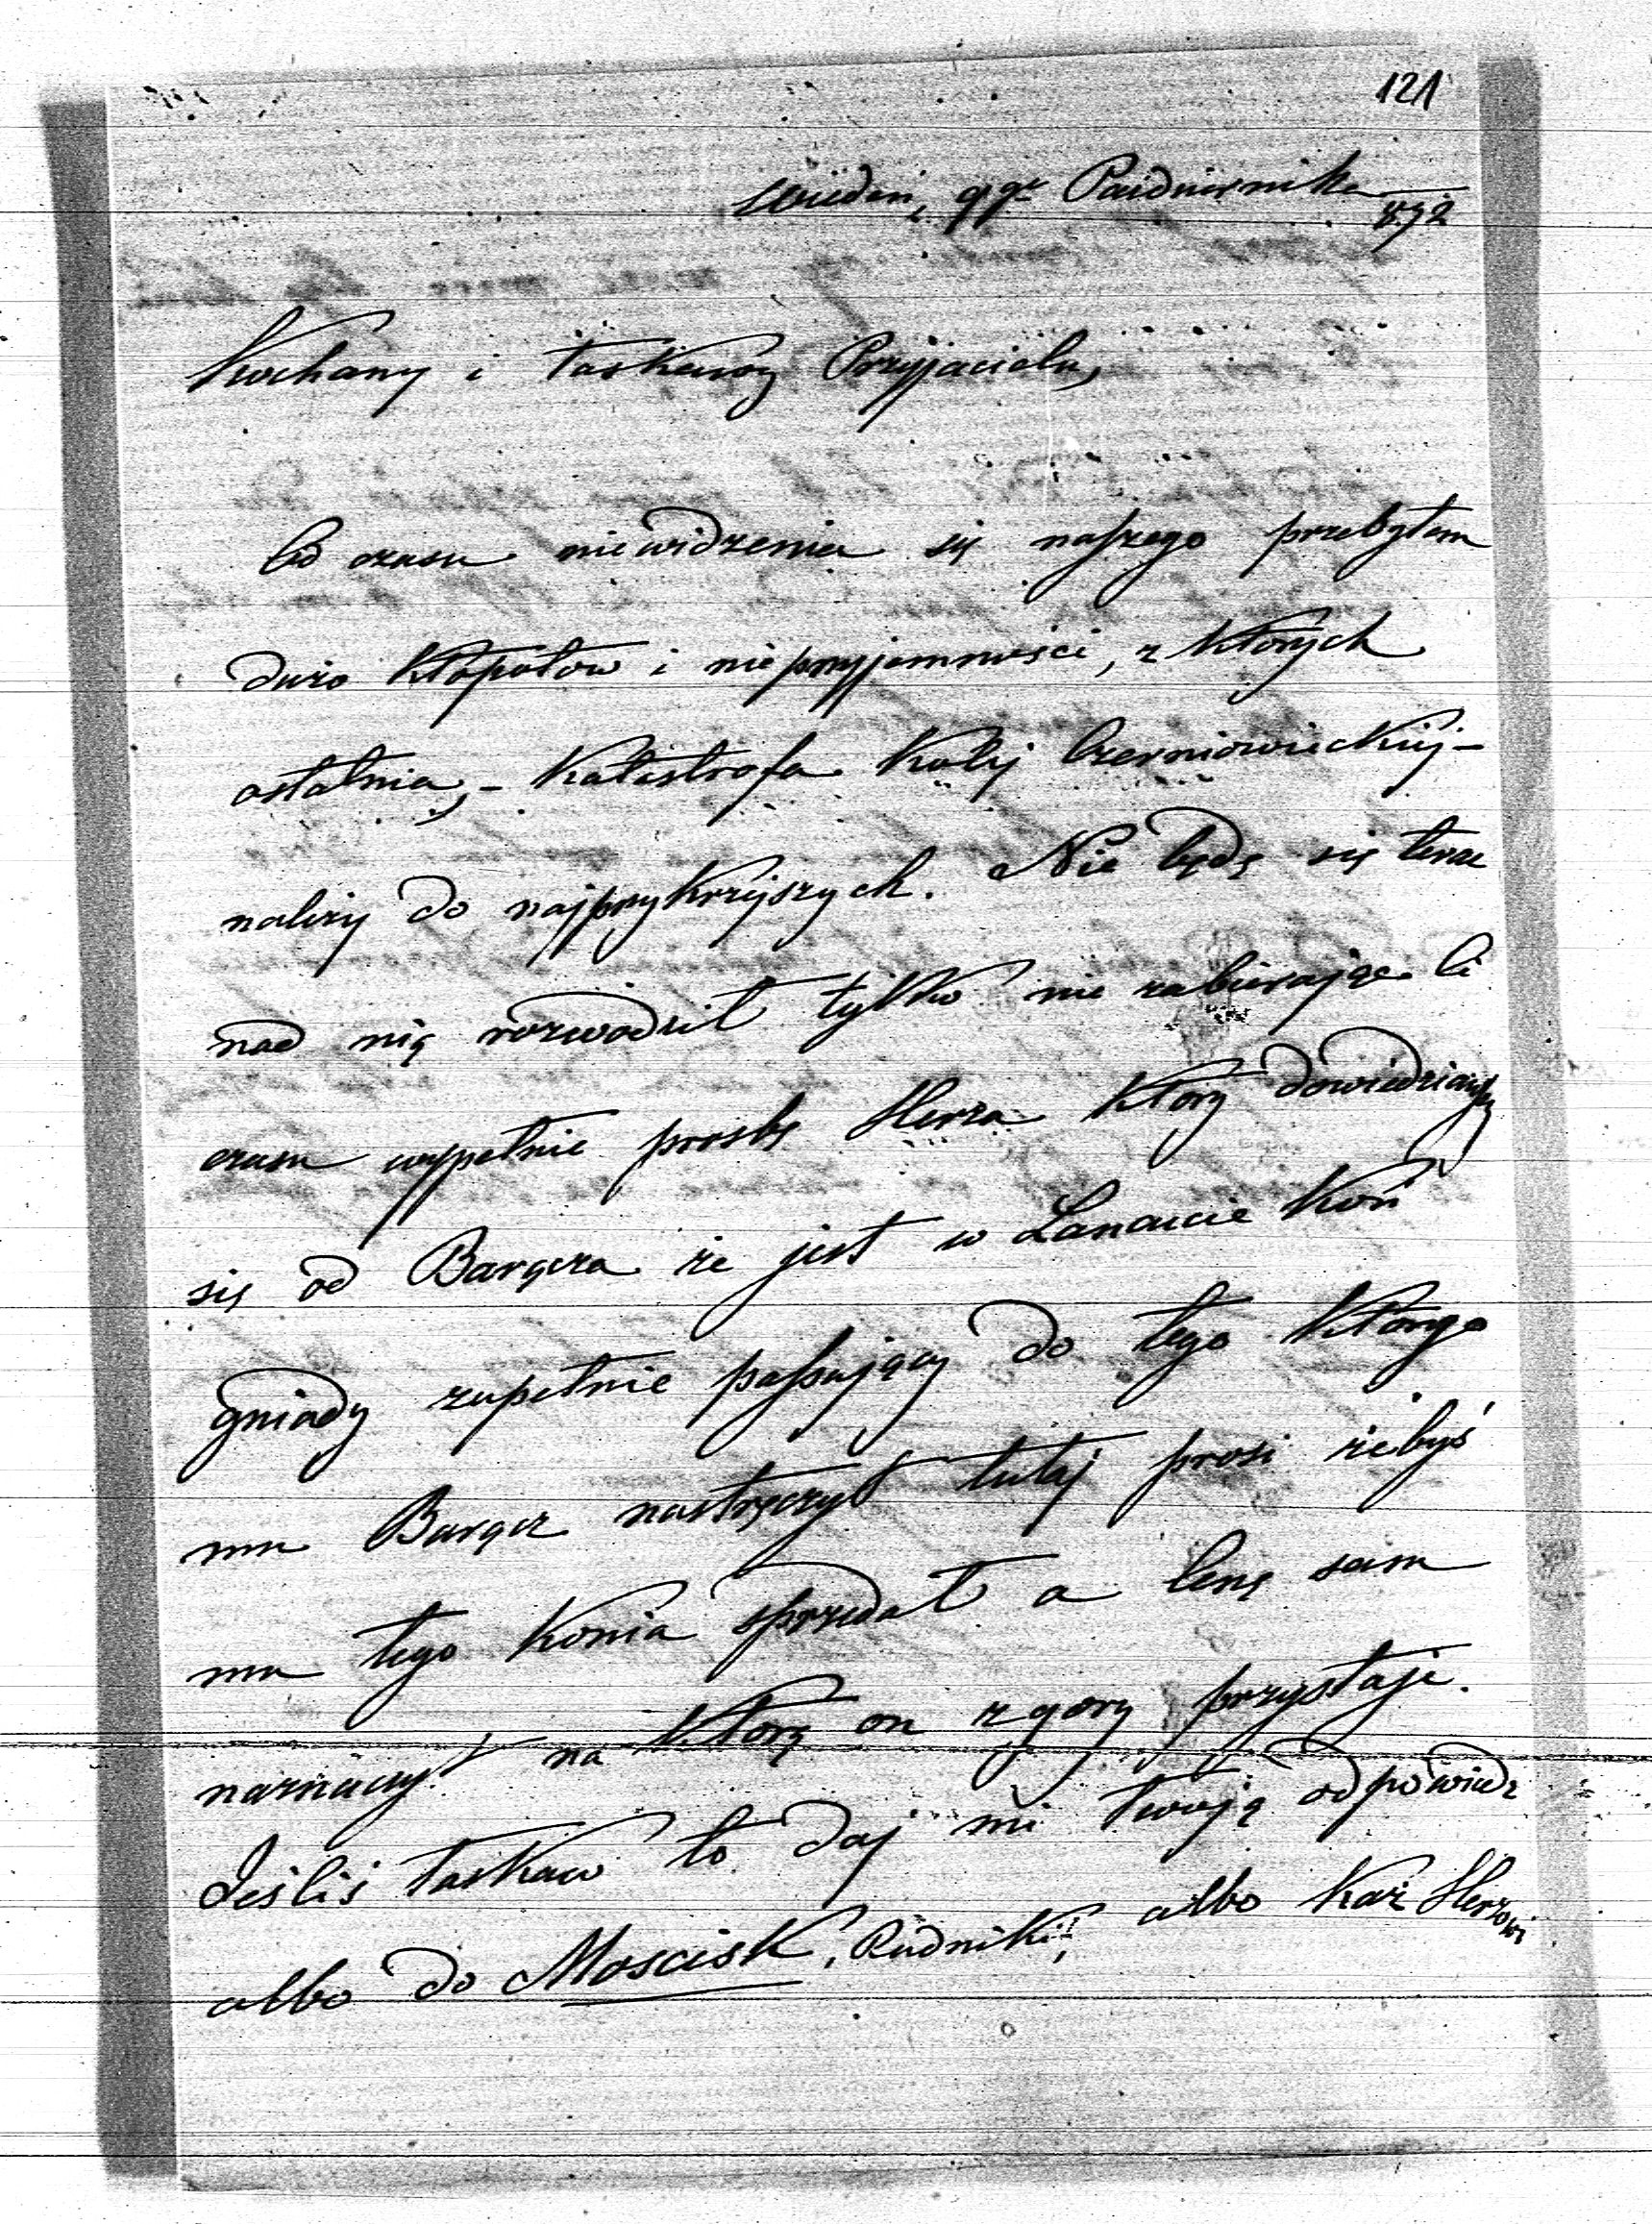 121
Wiedeń, 9go Października
872
Kochany i łaskawy Przyjacielu,
Od czasu niewidzenia się naszego przebyłem
dużo kłopotów i nieprzyjemności, z których
ostatnia, – katastrofa Kolij Czerniowieckiij –
należy do najprzykrzejszych. Nie będę się teraz
nad nią rozwodził tylko nie zabierając Ci
czasu wypełnie prosbę Herza który dowiedziawszy
się od Barącza że jest w Lancucie koń
gniady zupełnie passujący do tego którego
mu Barącz nastręczył tutaj prosi żebyś
mu tego konia sprzedał a Cenę sam
naznaczył na którą on z gory przystaje.
Jesliś łaskaw to daj mi twoją odpowiedz
albo do Moscisk, Rudniki, albo każ Herzowi